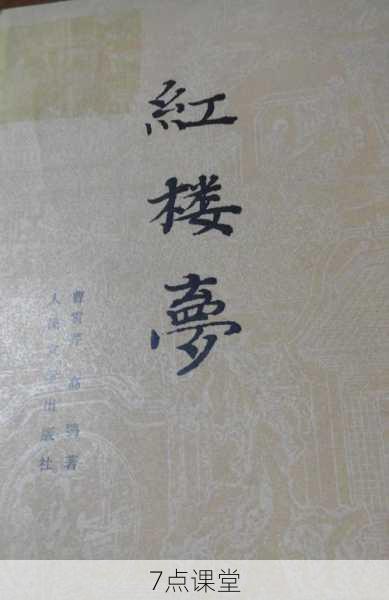 紅楼夢
曹雪芹 高鹗著
人民文学出版社
7点课堂